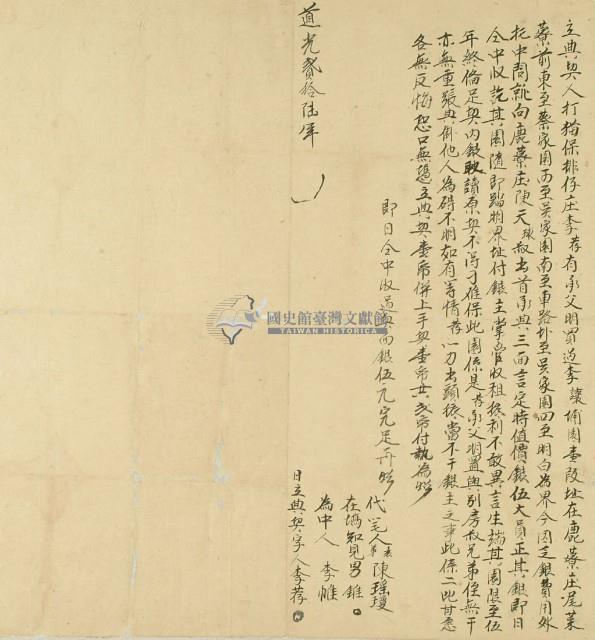 立典契人打猫保排仔庄李荐有承父明買過李讓埔園壹段址在鹿藔庄尾菜
藔前東至蔡家園西至吳家園南至車路北至吳家園四至明白為界今因乏銀費用外
托中問就向鹿藔庄陳天叔出首承典三面言定時值價銀伍大員正其銀即日
仝中收訖其園隨即踏明界址付銀主掌管收租抵利不敢異言生端其園限至伍
年終備足契內銀取贖原契不得刁难保此園係是荐承父明置與別房叔兄弟侄無干
亦無重張典掛他人為碍不明如有等情荐一力出頭抵當不干銀主之事此係二比甘愿
各無反悔恐口無憑立典契壹帋併上手契壹帋共弍帋付執為炤
即日仝中收過契面銀伍元完足再炤
代笔人 陳瑤瓊
在塲知見男 錐
為中人 李帷
道光貳拾陸年 月 日立典契字人李荐
國史館臺灣文獻館
TAIWAN HISTORICA